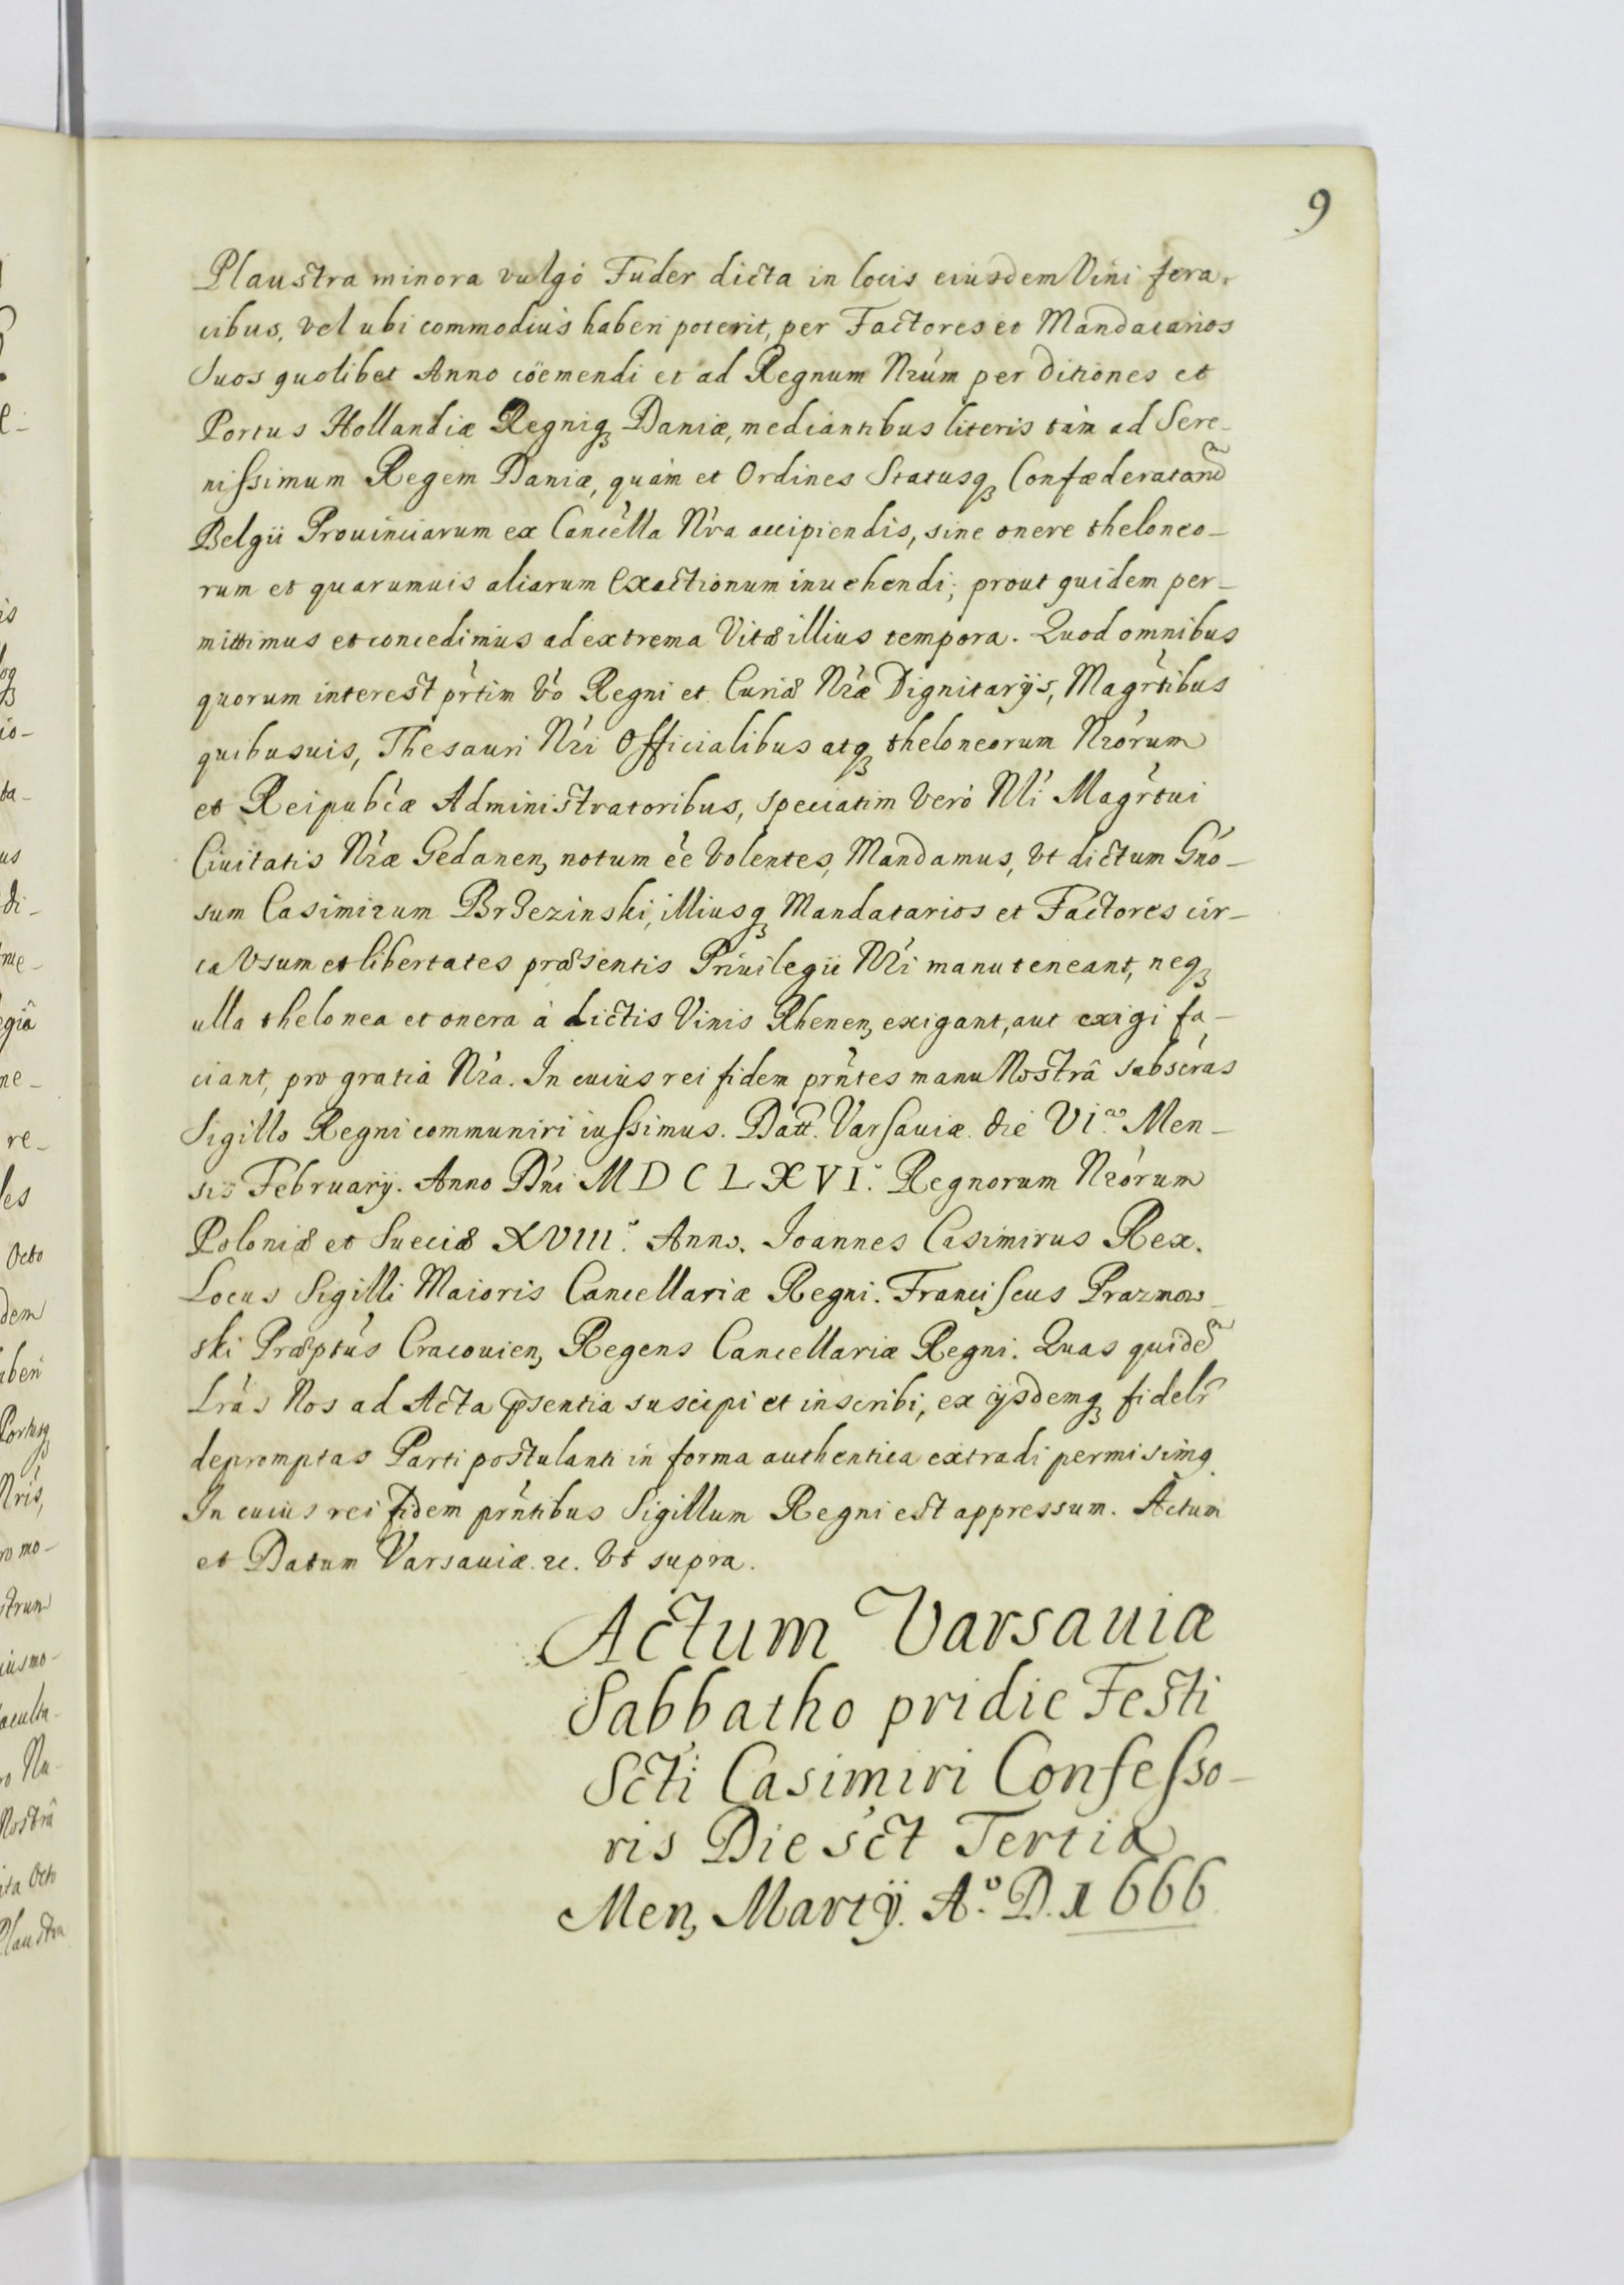 9
Plaustra minora vulgò Fuder dicta in locis eiusdem Vini fera-
cibus, vel ubi commodius haberi poterit, per Factores et Mandatarios
Suos quolibet Anno cöemendi et ad Regnum Nrum per ditiones et
Portus Hollandiæ Regniq Daniæ, mediantibus literis tàm ad Sere-
nissimum Regem Daniæ, quàm et Ordines Statusq Confæderatarũ
Belgii Prouinciarum ex Cancella Nra accipiendis, sine onere theloneo-
rum et quarumuis aliarum Exactionum inuehendi; prout quidem per-
mittimus et concedimus ad extrema Vitæ illius tempora. Quod omnibus
quorum interest prtim Vo Regni et Curiæ Nræ Dignitarÿs, Magrtibus
quibusuis, Thesauri Nri Officialibus atq theloneorum Nrorum
et Reipubcæ Administratoribus, speciatim verò Nbli Magrtui
Ciuitatis Nræ Gedanen, notum ee Volentes, Mandamus, Vt dictum Gno-
sum Casimirum Brzezinski, illiusq Mandatarios et Factores cir-
ca Vsum et libertates præsentis Priuilegii Nri manuteneant, neq
ulla thelonea et onera à dictis Vinis Rhenen, exigant, aut exigi fa-
ciant, pro gratia Nra. In cuius rei fidem prntes manu Nostrâ subscras
Sigillo Regni communiri iussimus. Datt. Varsauiæ die VI. Men-
sis Februarÿ. Anno Dni MDCLXVI. Regnorum Nrorum
Poloniæ et Sueciæ XVIII. Anno. Joannes Casimirus Rex.
Locus Sigilli Maioris Cancellariæ Regni. Franciscus Prazmow-
ski Præptus Cracouien, Regens Cancellariæ Regni. Quas quidẽ
Lras Nos ad Acta psentia suscipi et inscribi, ex ijsdemq fidelr
depromptas Parti postulanti in forma authentica extradi permisimq
In cuius rei fidem prntibus Sigillum Regni est appressum. Actum
et Datum Varsauiæ. rc. Vt supra.
Actum Varsauiæ
Sabbatho pridie Festi
Scti Casimiri Confesso-
ris Die sct Tertia
Men, Martÿ. A.º D. 1666